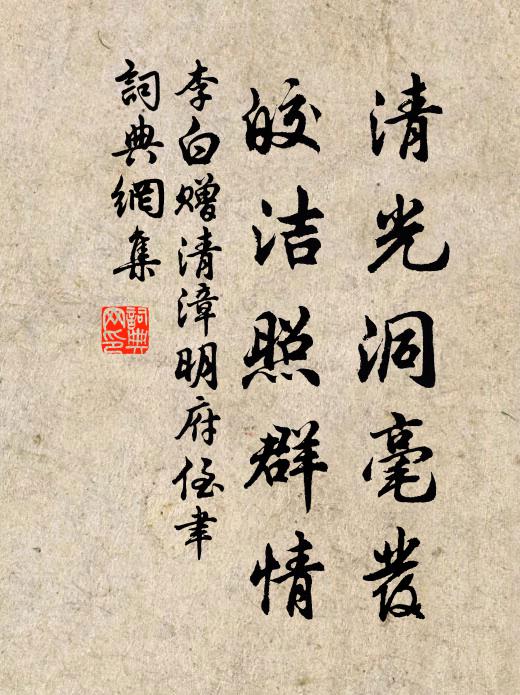 清光洞毫發
皎洁照群情
李白赠清漳明府侄聿
詞典網集
詞典网印